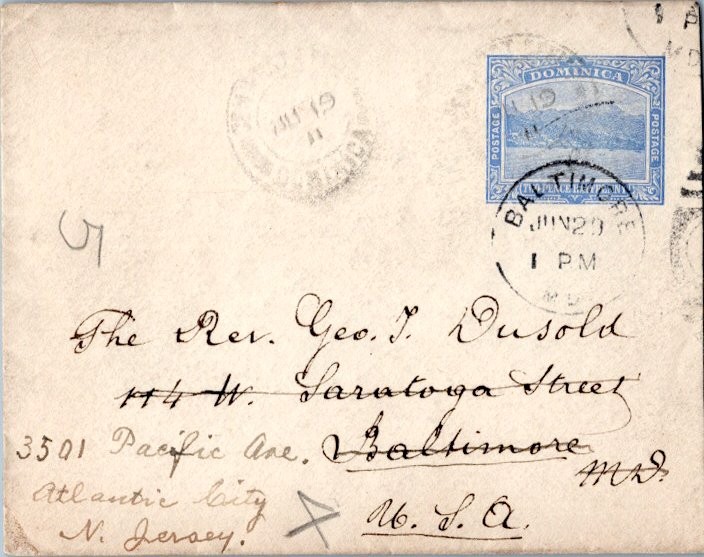 JUN 19
11
DOMINICA
DOMINICA
POSTAGE
POSTAGE
TWO PENCE HALFPENNY
19
BALTIMORE
JUN 29
1 PM
MD
1 P
MD
5
The Rev. Geo. T. Dusold
114 W. Saratoga Street
Baltimore
Md.
U. S. A.
3501 Pacific Ave.
Atlantic City
N. Jersey.